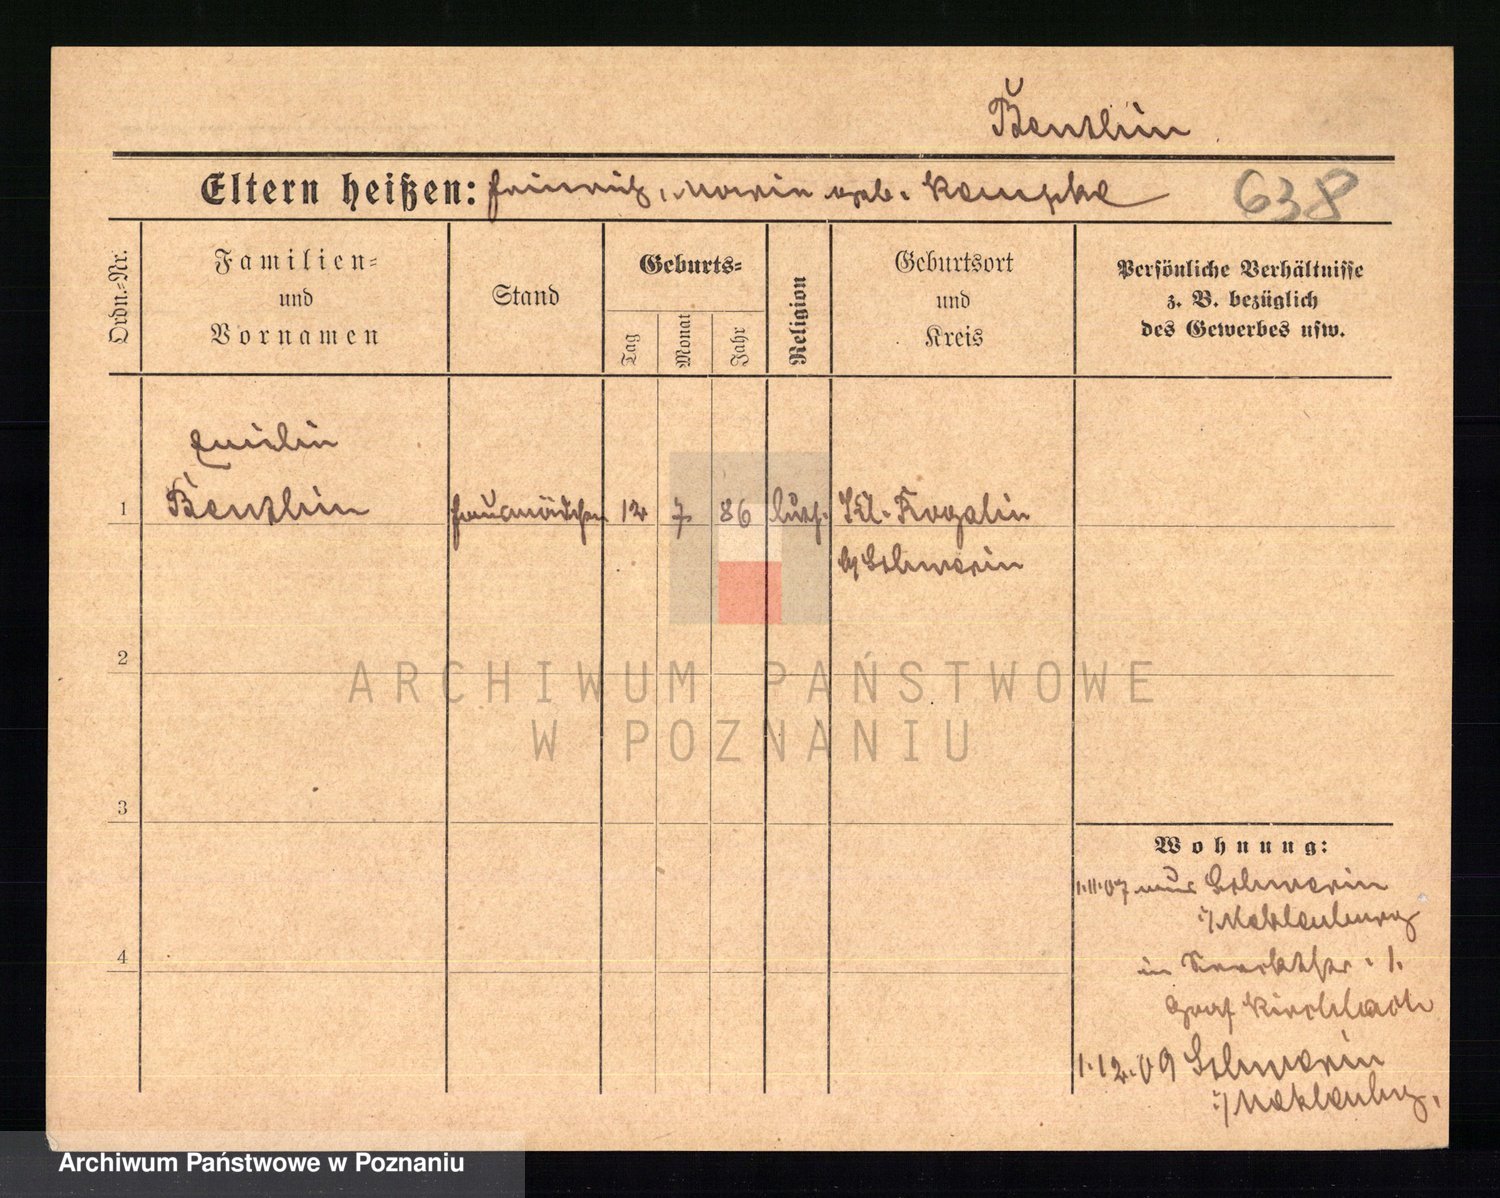 Benthin
Eltern heißen: Heinrich, Marie geb. Kempke
638
Ordn.-Nr.
Familien-
und
Vornamen
Stand
Geburts-
Tag
Monat
Jahr
Religion
Geburtsort
und
Kreis
Persönliche Verhältnisse
z. B. bezüglich
des Gewerbes usw.
Emilie
1 Benthin Hausmädchen 12 7 86 luth. Kl. Rogahn
Schwerin
2
ARCHIWUM PAŃSTWOWE
W POZNANIU
3
Wohnung:
1.11.07 aus Schwerin
i/Mecklenburg
in 1.
4
Graf Kirchbach
1.12.09 Schwerin
i/Mecklenbg.
Archiwum Państwowe w Poznaniu